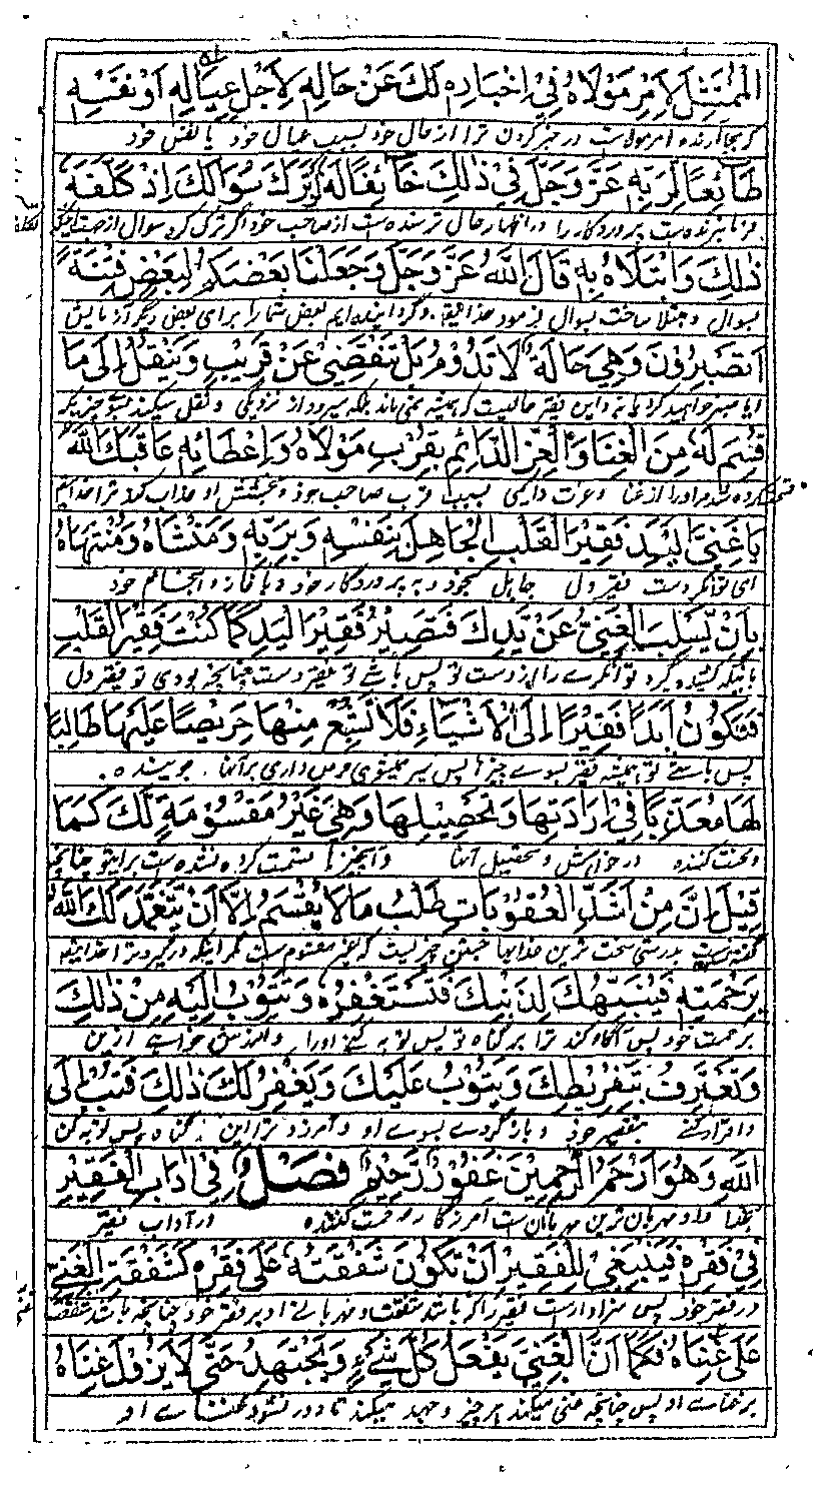 الْمُمْتَثِلَ لِاَمْرِ مَوْلَاهُ فِيْ اِخْبَارِهِ لَكَ عَنْ حَالِهِ لِاَجْلِ عِيَالِهِ اَوْ نَفْسِهِ
كه بجا آرنده امر مولاست در خبر كردن ترا از حال خود بسبب عيال خود يا نفس خود
طَائِعًا لِرَبِّهِ عَزَّ وَجَلَّ فِيْ ذٰلِكَ خَائِفًا لَهُ اِنْ تَرَكَ سُوَالَكَ اِذْ كَلَّفَهُ
فرمانبرنده است پروردگار را در اظهار حال ترسنده است از صاحب خود اگر ترك كرد سوال از
ذٰلِكَ وَابْتَلَاهُ بِهِ قَالَ اللّٰهُ عَزَّ وَجَلَّ وَجَعَلْنَا بَعْضَكُمْ لِبَعْضٍ فِتْنَةً
بسوال و مبتلا ساخت بسوال فرمود خدا وگردانيده ايم بعض شما را براى بعض ديگر آزمايش
اَتَصْبِرُوْنَ وَهِيَ حَالَةٌ لَا تَدُوْمُ بَلْ تَنْقَضِيْ عَنْ قَرِيْبٍ وَتَنْتَقِلُ اِلٰى مَا
آيا صبر خواهيد كرد يا نه و اين فقر حاليست كه هميشه نمى ماند بلكه ميرود از نزديكى و نقل ميكند بسوى چيزيكه
قُسِمَ لَهُ مِنَ الْغِنَا وَالْعِزِّ الدَّائِمِ بِقُرْبِ مَوْلَاهُ وَاِعْطَائِهِ عَاقَبَكَ اللّٰهُ
قسمت كرده شد مر او را از غنا و عزت دايمى بسبب قرب صاحب خود و بخشش او عذاب كند ترا خدايتعالى
يَا غَنِيَّ الْيَدِ فَقِيْرَ الْقَلْبِ الْجَاهِلَ بِنَفْسِهِ وَبِرَبِّهِ وَمَنْشَاهُ وَمُنْتَهَاهُ
اى توانگر دست فقير دل جاهل بخود و به پروردگار خود و بآغاز و انجام خود
بِاَنْ يَسْلُبَ الْغِنٰى عَنْ يَدِكَ فَتَصِيْرُ فَقِيْرَ الْيَدِ كَمَا كُنْتَ فَقِيْرَ الْقَلْبِ
بآنكه كشيده گيرد توانگرے را از دست تو پس باشے تو فقير دست چنانچه بودى تو فقير دل
فَتَكُوْنُ اَبَدًا فَقِيْرًا اِلَى الْاَشْيَاءِ فَلَا تَشْبَعُ مِنْهَا حَرِيْصًا عَلَيْهَا طَالِبًا
پس باشے تو هميشه فقير بسوے چيزها پس سير نميشوى حرص دارى بر آنها جوينده
لَهَا مُعَذَّبًا فِيْ اِرَادَتِهَا وَتَحْصِيْلِهَا وَهِيَ غَيْرُ مَقْسُوْمَةٍ لَكَ كَمَا
و محنت كننده در خواهش و تحصيل آنها و آنچيزها قسمت كرده نشده است براى تو چنانچه
قِيْلَ اِنَّ مِنْ اَشَدِّ الْعُقُوْبَاتِ طَلَبُ مَا لَا يُقْسَمُ اِلَّا اَنْ يَتَغَمَّدَكَ اللّٰهُ
گفته شده است بدرستى سخت ترين عذابها جستن چيزيست كه غير مقسوم است مگر اينكه در گيرد ترا خدايتعالى
بِرَحْمَتِهِ فَيُنَبِّهُكَ لِذَنْبِكَ فَتَسْتَغْفِرُهُ وَتَتُوْبُ اِلَيْهِ مِنْ ذٰلِكَ
برحمت خود پس آگاه كند ترا بر گناه تو پس توبه كنے او را و آمرزش خواہے ازين
وَتَعْتَرِفُ بِتَفْرِيْطِكَ وَيَتُوْبُ عَلَيْكَ وَيَغْفِرُ لَكَ ذٰلِكَ فَتُبْ اِلَى
و اقرار كنے بتقصير خود و باز گردے بسوے او و آمرزد ترا اين گناه پس توبه كن
اللّٰهِ وَهُوَ اَرْحَمُ الرّٰحِمِيْنَ غَفُوْرٌ رَحِيْمٌ فَصْلٌ فِيْ اٰدَابِ الْفَقِيْرِ
بخدا و او مهربان ترين مهربانان است آمرزگار رحمت كننده در آداب فقير
فِيْ فَقْرِهِ فَيَنْبَغِيْ لِلْفَقِيْرِ اَنْ تَكُوْنَ شَفْقَتُهُ عَلٰى فَقْرِهِ كَشَفْقَةِ الْغَنِيِّ
در فقر خود پس سزاوار است فقير را كه باشد شفقت و مهربانے او بر فقر خود چنانچه باشد شفقت
عَلٰى غِنَاهُ فَكَمَا اَنَّ الْغَنِيَّ يَفْعَلُ كُلَّ شَيْءٍ وَيَجْتَهِدُ حَتّٰى لَا يَزُوْلَ غِنَاهُ
بر غناے او پس چنانچه غنى ميكند هر چيز و جهد ميكند تا دور نشود غناے او